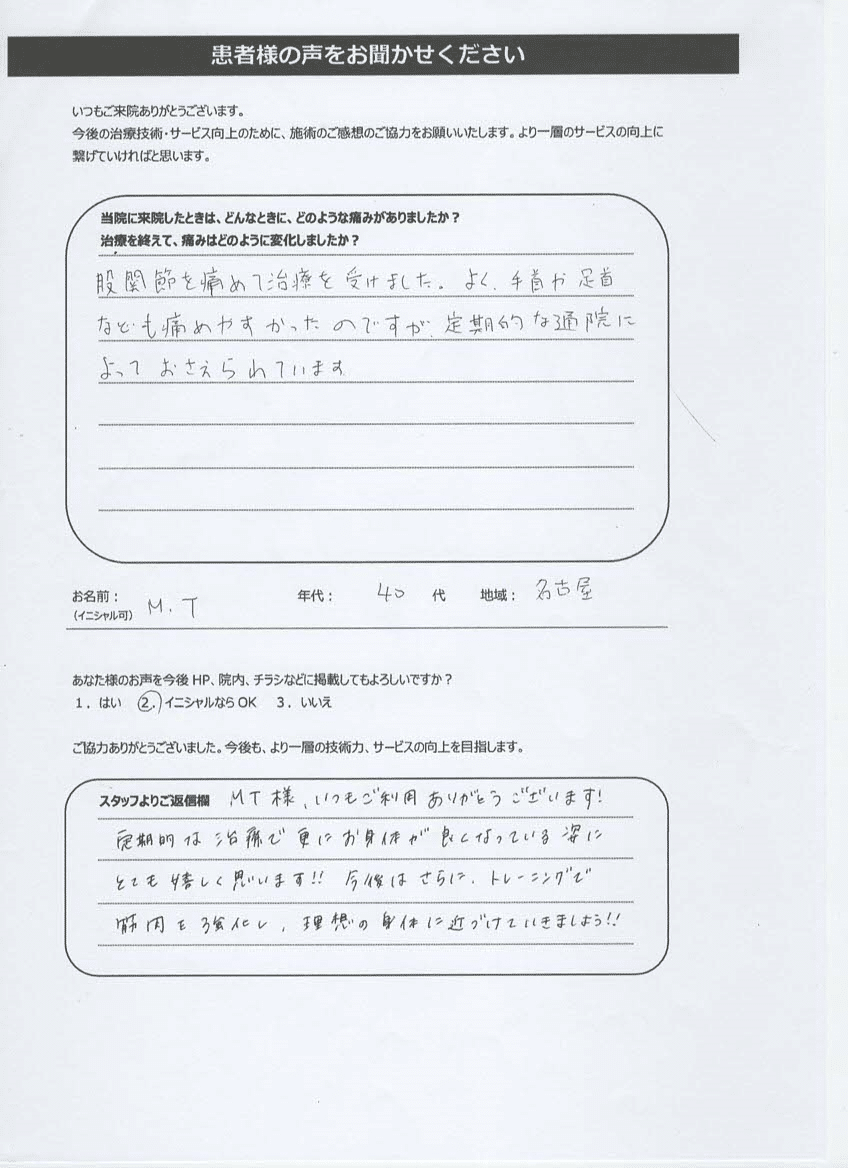 患者様の声をお聞かせください
いつもご来院ありがとうございます。
今後の治療技術・サービス向上のために、施術のご感想のご協力をお願いいたします。より一層のサービスの向上に
繋げていければと思います。
当院に来院したときは、どんなときに、どのような痛みがありましたか？
治療を終えて、痛みはどのように変化しましたか？
股関節を痛めて治療を受けました。よく、手首や足首
なども痛めやすかったのですが、定期的な通院に
よっておさえられています
お名前： M.T 年代： 40 代 地域： 名古屋
（イニシャル可）
あなた様のお声を今後 HP、院内、チラシなどに掲載してもよろしいですか？
1．はい 2．イニシャルなら OK 3．いいえ
ご協力ありがとうございました。今後も、より一層の技術力、サービスの向上を目指します。
スタッフよりご返信欄 MT様、いつもご利用ありがとうございます!
定期的な治療で更にお身体が良くなっている姿に
とても嬉しく思います!! 今後はさらに、トレーニングで
筋肉を強化し、理想の身体に近づけていきましょう!!